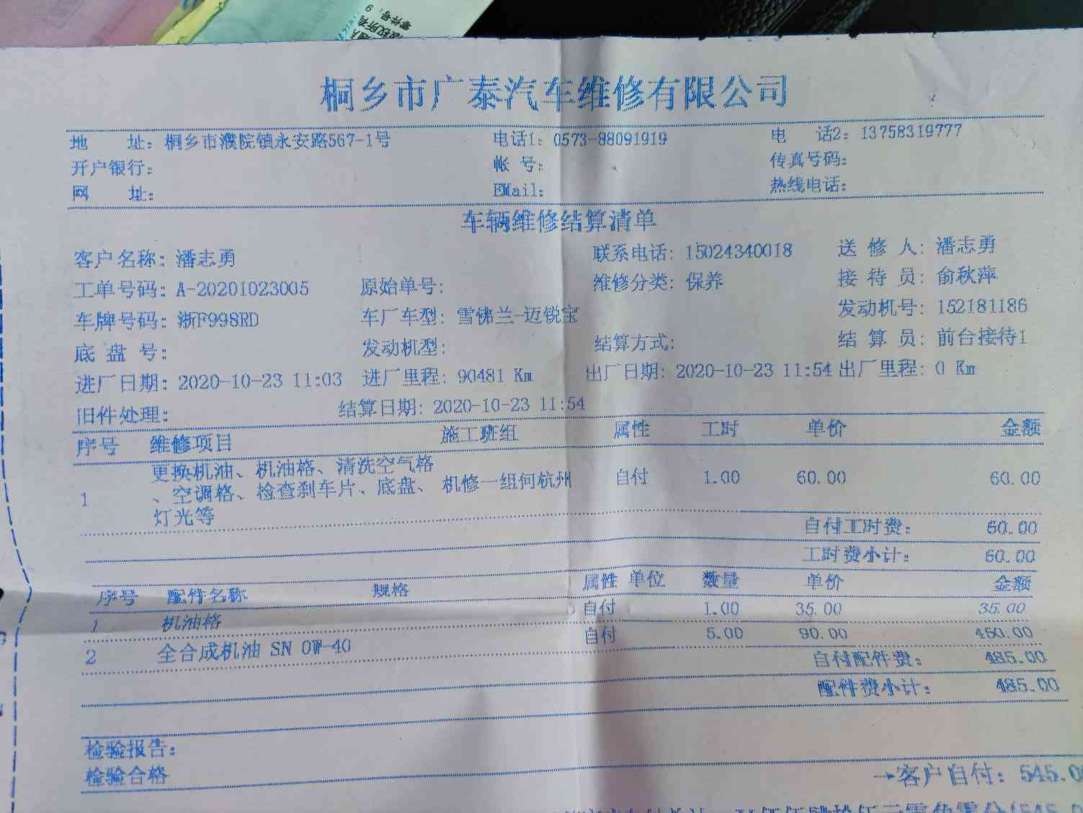 桐乡市广泰汽车维修有限公司
地 址: 桐乡市濮院镇永安路567-1号 电话1: 0573-88091919 电 话2: 13758319777
开户银行: 帐 号: 传真号码:
网 址: EMail: 热线电话:
车辆维修结算清单
客户名称: 潘志勇 联系电话: 15024340018 送 修 人: 潘志勇
工单号码: A-20201023005 原始单号: 维修分类: 保养 接 待 员: 俞秋萍
车牌号码: 浙F998RD 车厂车型: 雪佛兰-迈锐宝 发动机号: 152181186
底 盘 号: 发动机型: 结算方式: 结 算 员: 前台接待1
进厂日期: 2020-10-23 11:03 进厂里程: 90481 Km 出厂日期: 2020-10-23 11:54 出厂里程: 0 Km
旧件处理: 结算日期: 2020-10-23 11:54
序号 维修项目 施工班组 属性 工时 单价 金额
更换机油、机油格、清洗空气格
1 、空调格、检查刹车片、底盘、 机修一组何杭州 自付 1.00 60.00 60.00
灯光等
自付工时费: 60.00
工时费小计: 60.00
序号 配件名称 规格 属性 单位 数量 单价 金额
1 机油格 自付 1.00 35.00 35.00
2 全合成机油 SN 0W-40 自付 5.00 90.00 450.00
自付配件费: 485.00
配件费小计: 485.00
检验报告:
检验合格
→客户自付: 545.0